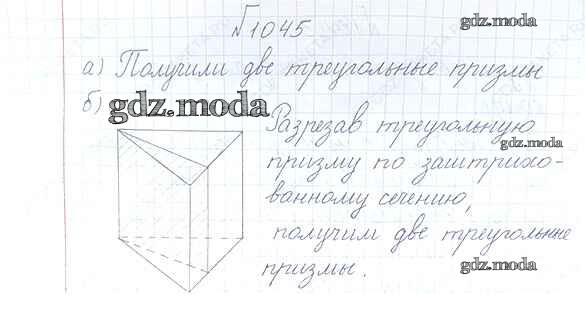 №1045
gdz.moda
а) Получили две треугольные призмы
б)
gdz.moda
Разрезав треугольную
gdz.moda
призму по заштрихо-
ванному сечению,
получим две треугольные
призмы.
gdz.moda